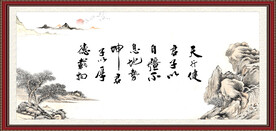 天行健
君子以
自彊不
息地勢
坤君
子以厚
德載物